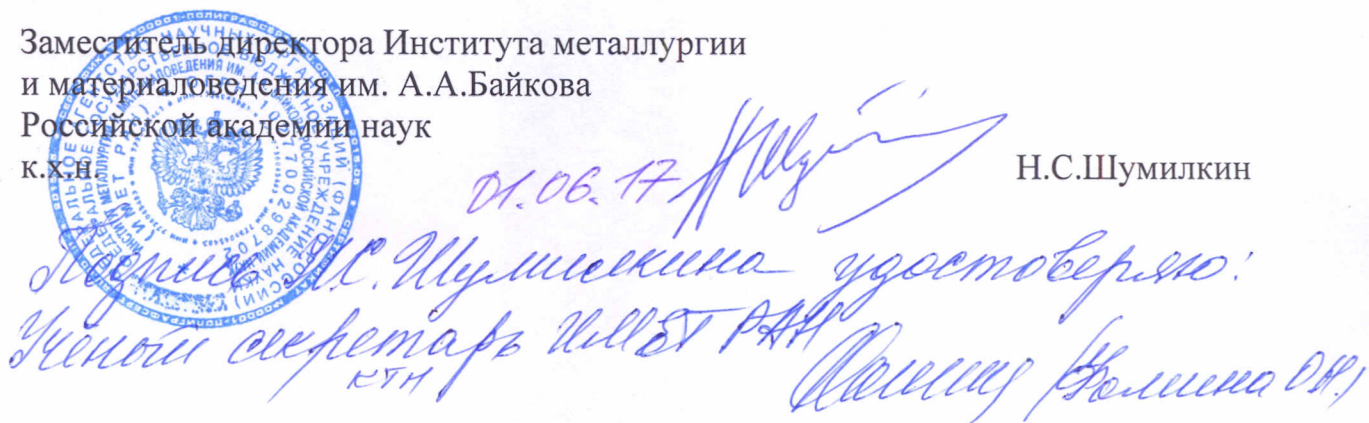 Заместитель директора Института металлургии
и материаловедения им. А.А.Байкова
Российской академии наук
к.х.н.
01.06.17
Н.С.Шумилкин
Подпись Н.С. Шумилкина удостоверяю:
Ученый секретарь ИМЕТ РАН
кТН
Фомина О.Н.